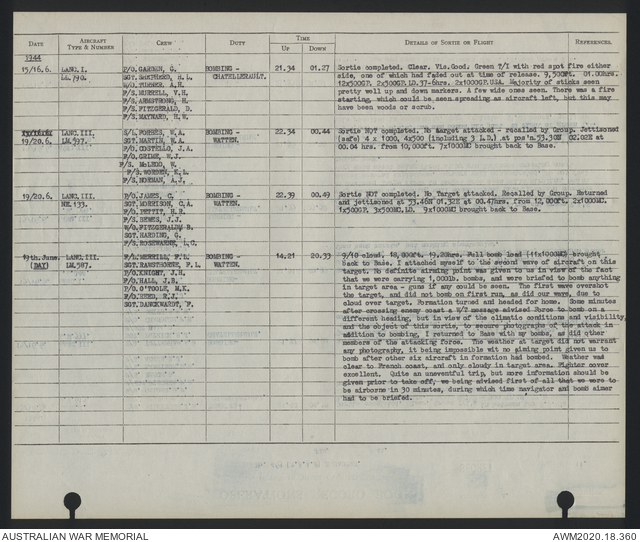 DATE
AIRCRAFT TYPE & NUMBER
CREW
DUTY
TIME
UP
DOWN
DETAILS OF SORTIE OR FLIGHT
REFERENCES.
1944
15/16.6. LANC.I. LM.790.
P/O. GARDEN, G.
SGT. SHEPHERD, H.L.
W/O. TURNER, A.H.
F/S. MURRELL, V.H.
F/S. ARMSTRONG, H.
F/S. FITZGERALD, D.
F/S. MAYNARD, H.W.
BOMBING - CHATELLERAULT.
21.34 01.27
Sortie completed. Clear. Vis.Good. Green T/I with red spot fire either
side, one of which had faded out at time of release. 9,500ft. 01.00hrs.
12x500GP. 2x500GP.LD.37-6hrs. 2x1000GP.USA. Majority of sticks seen
pretty well up and down markers. A few wide ones seen. There was a fire
starting, which could be seen spreading as aircraft left, but this may
have been woods or scrub.
19/20.6. LANC.III. LM.597.
S/L. FORBES, W.A.
SGT. MARTIN, E.A.
F/O. COSTELLO, J.A.
F/O. GRIME, W.J.
F/S. McLEOD, W.
F/S. WORDEN, K.L.
F/S. NORMAN, A.J.
BOMBING - WATTEN.
22.34 00.44
Sortie NOT completed. No target attacked - recalled by Group. Jettisoned
(safe) 4 x 1000, 4x500 (including 3 L.D.) at pos'n.53.30N 02.02E at
00.04 hrs. from 10,000ft. 7x1000MC brought back to Base.
19/20.6. LANC.III. ME.133.
P/O. JAMES, C.
SGT. MORRISON, C.A.
F/O. PETTIT, H.R.
F/S. SEWES, J.J.
W/O. FITZGERALD, B.
SGT. HARDING, G.
F/S. ROSEWARNE, L.C.
BOMBING - WATTEN.
22.39 00.49
Sortie NOT completed. No Target attacked. Recalled by Group. Returned
and jettisoned at 53.46N 01.32E at 00.47hrs. from 12,000ft. 2x1000MC.
1x500GP. 3x500MC.LD. 9x1000MC brought back to Base.
19th.June. (DAY) LANC.III. LM.587.
F/L. MERRILL, F.L.
SGT. RANSTHORNE, F.L.
F/O. KNIGHT, J.H.
F/O. HALL, J.E.
P/O. O'TOOLE, M.K.
F/O. REED, R.J.
SGT. DANCKWARDT, F.
BOMBING - WATTEN.
14.21 20.33
9/10 cloud. 18,000ft. 19.28hrs. Full bomb load (11x1000MC) brought
back to Base. I attached myself to the second wave of aircraft on this
target. No definite aiming point was given to us in view of the fact
that we were carrying 1,000lb. bombs, and were briefed to bomb anything
in target area - guns if any could be seen. The first wave overshot
the target, and did not bomb on first run, as did our wave, due to
cloud over target. Formation turned and headed for home. Some minutes
after crossing enemy coast a W/T message advised Force to bomb on a
different heading, but in view of the climatic conditions and visibility,
and the object of this sortie, to secure photographs of the attack in
addition to bombing, I returned to Base with my bombs, as did other
members of the attacking force. The weather at target did not warrant
any photography, it being impossible wit no aiming point given us to
bomb after other six aircraft in formation had bombed. Weather was
clear to French coast, and only cloudy in target area. Fighter cover
excellent. Quite an uneventful trip, but more information should be
given prior to take off, we being advised first of all that we were to
be airborne in 30 minutes, during which time navigator and bomb aimer
had to be briefed.
AUSTRALIAN WAR MEMORIAL
AWM2020.18.360